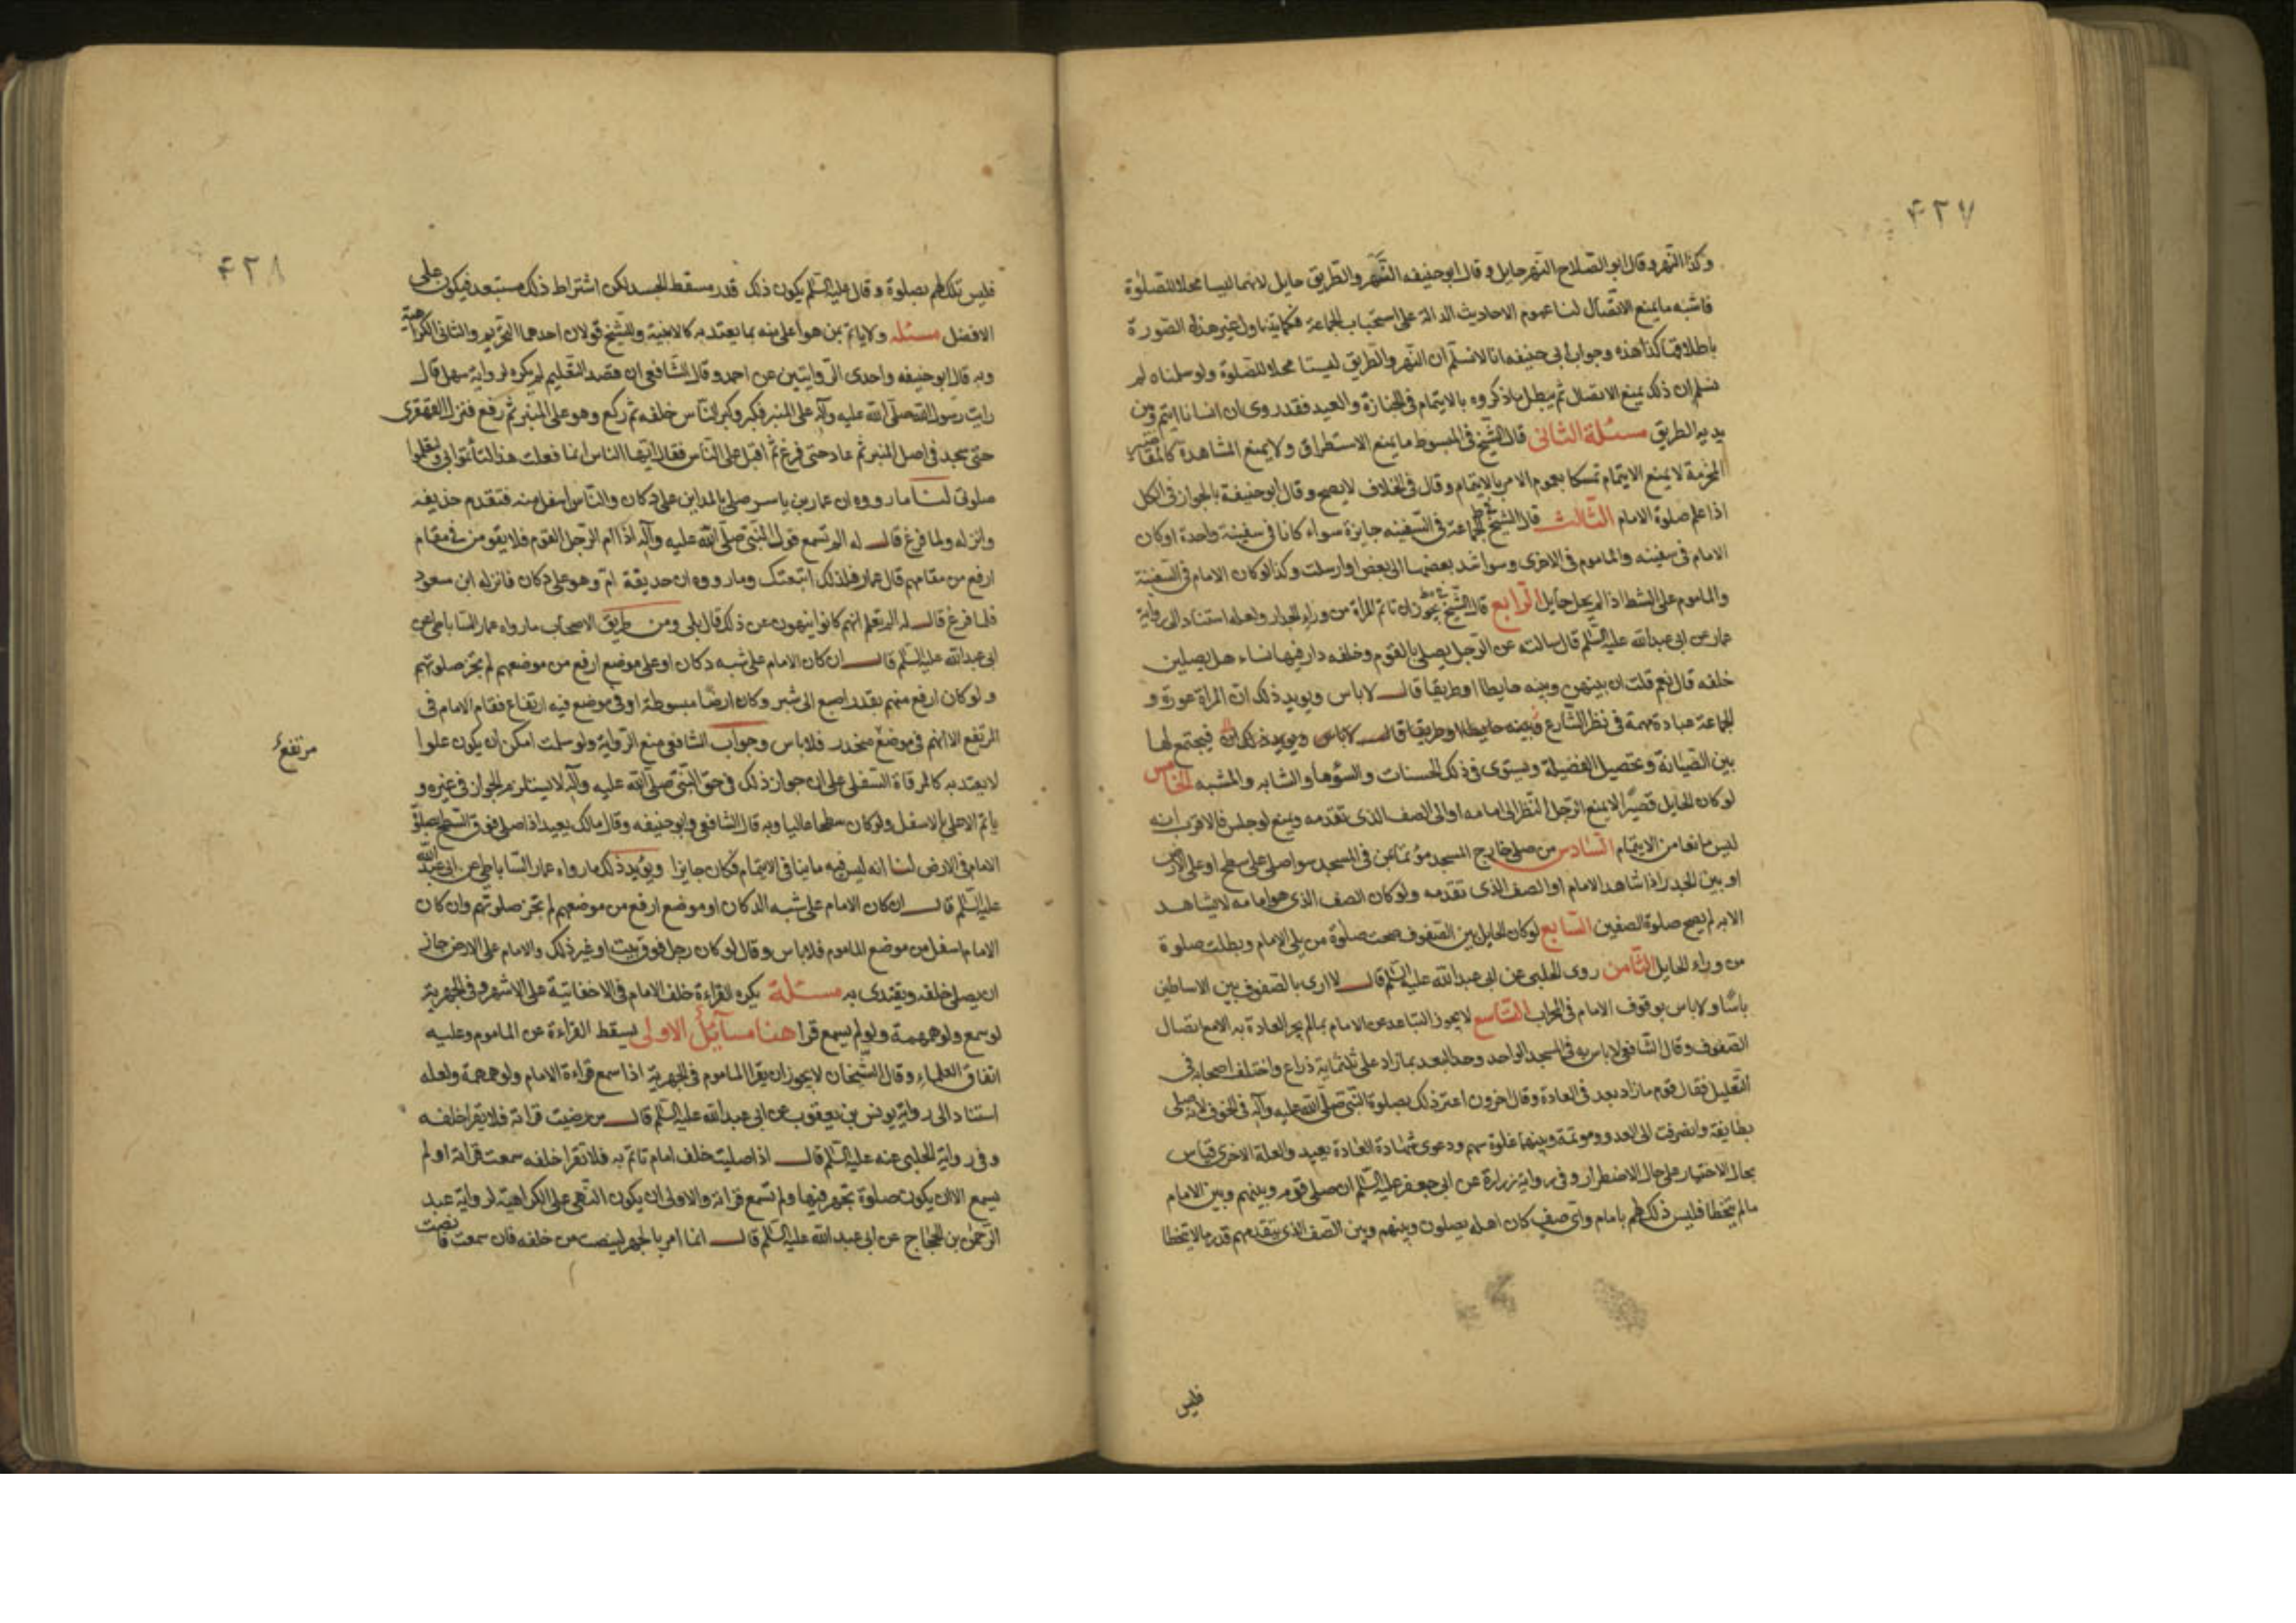 ٤٢٧
وكذا النهر وقال ابو الصلاح النهر حايل وقال ابوحنيفه النهر والطريق حايل لانهما ليسا محلا للصلوة
فاشبه ما يمنع الاتصال لنا عموم الاحاديث الدالة على استحباب الجماعة فكما يتناول غير هذه الصورة
باطلاقها كذا هذه وجواب ابي حنيفه انا لانسلم ان النهر والطريق ليستا محلا للصلوة ولو سلمناه لم
نسلم ان ذلك يمنع الاتصال ثم يبطل بما ذكروه بالايتمام في الجنازة والعيد فقد روى ان انسانا ايتم وبين
يديه الطريق مسئلة الثانى قال الشيخ في المبسوط ما يمنع الاستطراق ولا يمنع المشاهدة كالمقاصير
المخرمة لا يمنع الايتمام تمسكا بعموم الامر بالايتمام وقال في الخلاف لا يصح وقال ابو حنيفة بالجواز في الكل
اذا علم صلوة الامام الثالث قال الشيخ الجماعة في السفينه جايزة سواء كانا في سفينة واحدة او كان
الامام في سفينه والماموم في الاخرى وسوا شد بعضهما الى بعض او ارسلت وكذا لو كان الامام في السفينة
والماموم على الشط اذا لم يحل حايل الرابع قال الشيخ يجوز ان تاتم المراة من وراء الجدار ولعله استنادا الى رواية
عمار عن ابى عبدالله عليه السلم قال سالته عن الرجل يصلى بالقوم وخلفه دار فيها نساء هل يصلين
خلفه قال نعم قلت ان بينهن وبينه حايطا او طريقا قال لا باس ويويد ذلك ان المراة عورة و
الجماعة عبادة مهمة في نظر الشارع وبينه حايطا او طريقا قال لا باس ويويد ذلك ان فيجتمع لها
بين الصيانة وتحصيل الفضيلة ويستوى في ذلك الحسنات والسؤها والشابه والمشبه الخامس
لو كان الحايل قصيرا لا يمنع الرجل النظر الى امامه او الى الصف الذى تقدمه ويمنع لو جلس فالاقرب انه
ليس مانعا من الايتمام السادس من صلى خارج المسجد مؤتما بمن في المسجد سوا صلى على سطح او على الارض
او بين الجدر اذا شاهد الامام او الصف الذى تقدمه ولو كان الصف الذى هو امامه لا يشاهد
الا به لم يصح صلوة الصفين السابع لو كان الحايل بين الصفوف صحت صلوة من يلى الامام وبطلت صلوة
من وراء الحايل الثامن روى الحلبى عن ابى عبدالله عليه السلم قال لا ارى بالصفوف بين الاساطين
باسا ولا باس بوقوف الامام في المحراب التاسع لا يجوز التباعد عن الامام بما لم يجر العادة به الا مع اتصال
الصفوف وقال الشافعى لا باس به في المسجد الواحد وحد البعد بما زاد على ثلثماية ذراع واختلف اصحابه في
التعليل فقال قوم ما زاد بعد في العادة وقال اخرون اعتبر ذلك بصلوة النبي صلى الله عليه وآله في الخوف لانه صلى
بطايفة وانصرفت الى العدو وموتمة وبينهما غلوة سهم ودعوى شهادة العادة بعيد والعلة الاخرى قياس
بحال الاختيار على حال الاضطرار وفي رواية زرارة عن ابى جعفر عليه السلم ان صلى قوم وبينهم وبين الامام
مالم يتخطا فليس ذلك لهم بامام واى صف كان اهله يصلون وبينهم وبين الصف الذى يتقدمهم قدر مالا يتخطا
فليس
٤٢٨
فليس تلك لهم بصلوة وقال عليه السلم يكون ذلك قدر مسقط الجسد لكن اشتراط ذلك مستبعد فيكون على
الافضل مسئله ولا ياتم بمن هو اعلى منه بما يعتد به كالابنية وللشيخ قولان احدهما التحريم والثانى الكراهية
وبه قال ابو حنيفه واحدى الروايتين عن احمد وقال الشافعى ان قصد التعليم لم يكره لرواية سهل قال
رايت رسول الله صلى الله عليه وآله على المنبر فكبر وكبر الناس خلفه ثم ركع وهو على المنبر ثم رفع فنزل القهقرى
حتى سجد في اصل المنبر ثم عاد حتى فرغ ثم اقبل على الناس فقال ايها الناس انما فعلت هذا لتأتموا بى وتعلموا
صلوتى لنا ما رووه ان عمار بن ياسر صلى بالمداين على دكان والناس اسفل منه فتقدم حذيفه
وانزله ولما فرغ قال له الم تسمع قول النبي صلى الله عليه وآله اذا ام الرجل القوم فلا يقومن في مقام
ارفع من مقامهم قال عمار فلذلك اتبعتك وما رووه ان حديقة ام وهو على دكان فانزله ابن سعود
فلما فرغ قال له الم تعلم انهم كانوا ينهون عن ذلك قال بلى ومن طريق الاصحاب ما رواه عمار الساباطى عن
ابى عبدالله عليه السلم قال ان كان الامام على شبه دكان او على موضع ارفع من موضعهم لم تجز صلوتهم
ولو كان ارفع منهم بقدر اصبع الى شبر وكان ارضا مبسوطة او في موضع فيه ارتفاع فقام الامام في
المرتفع الا انهم في موضع منحدر فلا باس وجواب الشافعى منع الرواية ولو سلمت امكن ان يكون علوا
مرتفع
لا يعتد به كالمرقاة السفلى على ان جواز ذلك في حق النبي صلى الله عليه وآله لا يستلزم الجواز في غيره و
ياتم الاعلى بالاسفل ولو كان سطحا عاليا وبه قال الشافعى وابو حنيفه وقال مالك يعيد اذا صلى فوق السطح بصلوة
الامام في الارض لنا انه ليس فيه ما ينافى الايتمام فكان جايزا ويؤيد ذلك ما رواه عمار الساباطى عن ابى عبدالله
عليه السلم قال ان كان الامام على شبه الدكان او موضع ارفع من موضعهم لم تجز صلوتهم وان كان
الامام اسفل من موضع الماموم فلا باس وقال لو كان رجل فوق بيت او غير ذلك والامام على الارض جاز
ان يصلى خلفه ويقتدى به مسئلة يكره القراءة خلف الامام في الاخفاتية على الاشهر وفي الجهرية
لو سمع ولو همهمة ولو لم يسمع قرا هنا مسآئل الاولى يسقط القراءة عن الماموم وعليه
اتفاق العلماء وقال الشيخان لا يجوز ان يقرا الماموم في الجهرية اذا سمع قراءة الامام ولو همهمة ولعله
استنادا الى رواية يونس بن يعقوب عن ابى عبدالله عليه السلم قال من رضيت قرائة فلا يقرا خلفه
وفي رواية الحلبى عنه عليه السلم قال اذا صليت خلف امام تاتم به فلا تقرا خلفه سمعت قرائة او لم
يسمع الا ان يكون صلوة تجهر فيها ولم تسمع قرائة والاولى ان يكون النهى على الكراهية لرواية عبد
الرحمن بن الحجاج عن ابى عبدالله عليه السلم قال انما امر بالجهر لينصت من خلفه فان سمعت فانصت